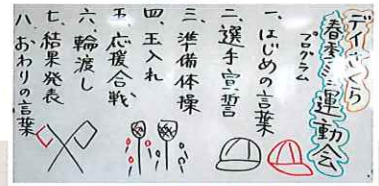 デイさくら
春季ミニ運動会
プログラム
一、はじめの言葉
二、選手宣誓
三、準備体操
四、玉入れ
五、応援合戦
六、輪渡し
七、結果発表
八、おわりの言葉